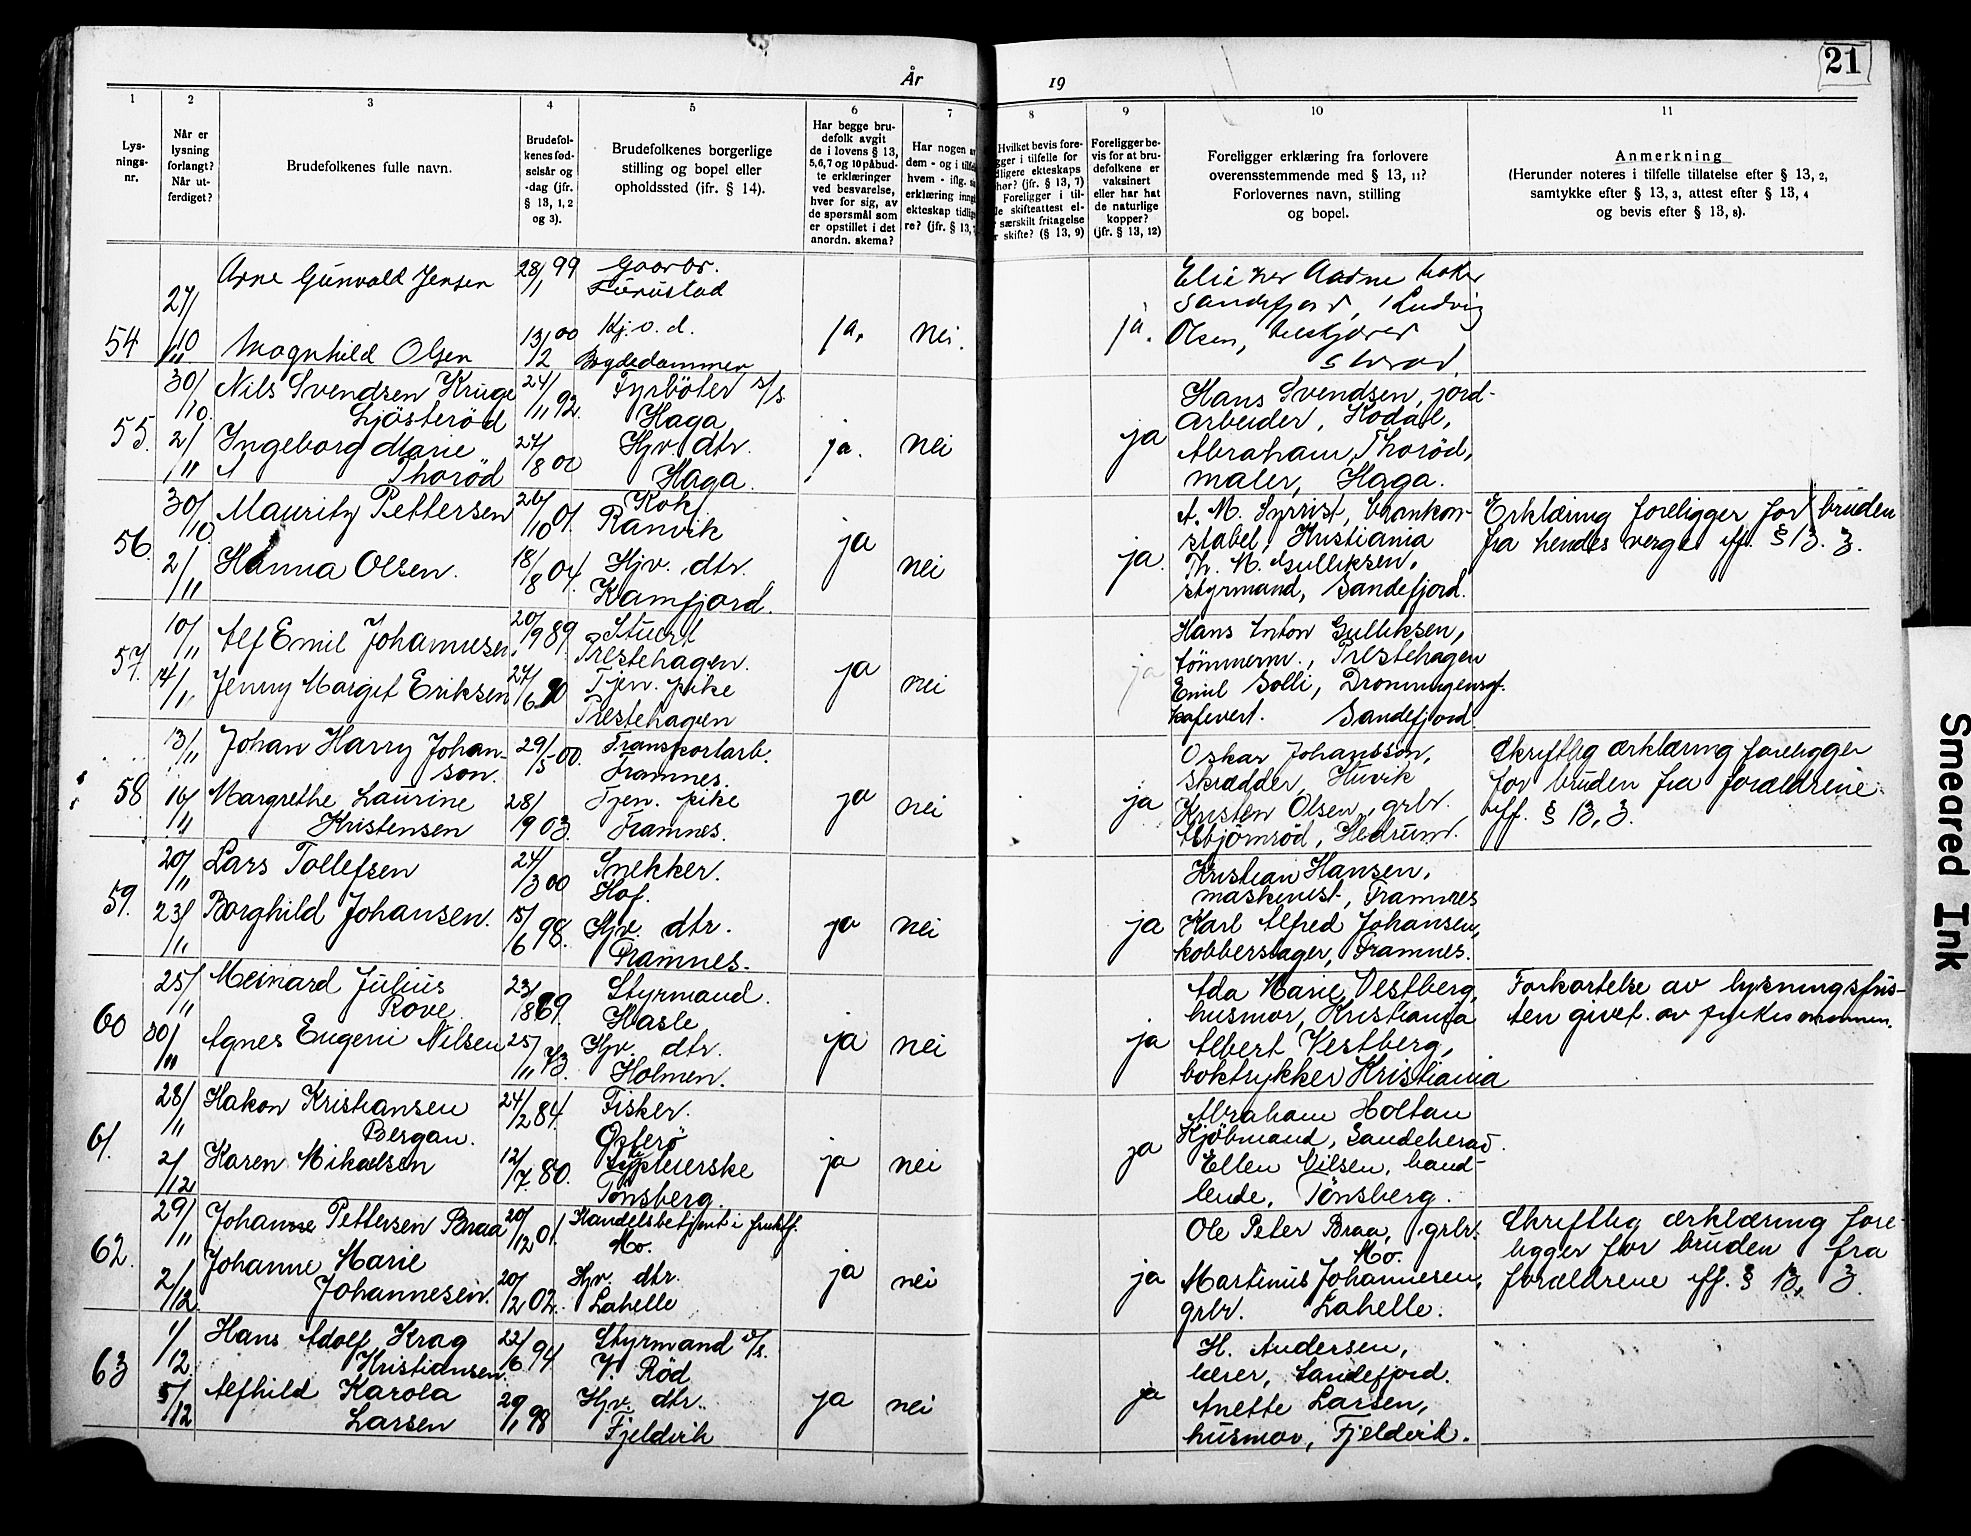 År
19
21
1
2
3
4
5
6
7
8
9
10
11
Lys-
nings-
nr.
Når er
lysning
forlangt?
Når ut-
ferdiget?
Brudefolkenes fulle navn.
Brudefol-
kenes fød-
selsår og
-dag (jfr.
§ 13, 1, 2
og 3).
Brudefolkenes borgerlige
stilling og bopel eller
opholdssted (ifr. § 14).
Har begge bru-
defolk avgit
de i lovens § 13,
5,6,7 og 10 påbud-
te erklæringer
ved besvarelse,
hver for sig, av
de spørsmål som
er opstillet i det
anordn. skema?
Har nogen a
dem - og i tilfe
hvem - iflg. s
erklæring inng
ekteskap tidlig
re? (jfr. § 13,
Hvilket bevis fore-
gger i tilfelle for
dligere ekteskaps
hør? (jfr. § 13, 7)
Foreligger i til-
le skifteattest el-
særskilt fritagelse
r skifte? (§ 13, 9)
Foreligger be-
vis for at bru-
defolkene er
vaksinert
eller har hat
de naturlige
kopper?
(jfr. § 13, 12)
Foreligger erklæring fra forlovere
overensstemmende med § 13, 11?
Forlovernes navn, stilling
og bopel.
Anmerkning
(Herunder noteres i tilfelle tillatelse efter § 13, 2,
samtykke efter § 13, 3, attest efter § 13, 4
og bevis efter § 13, 8).
54
27/10
Arne Gunvald Jensen
28/1 99
Gaarbr.
Furustad
Magnhild Olsen
13/2 00
Kj. v. d.
Bygdedammen
ja.
nei.
ja.
Aadne
Sandefjord, Ludvig
Olsen,
55.
30/10.
2/11
Nils Svendsen Kruge
Ljösteröd
24/11 92.
Fyrböter s/s
Haga
Ingeborg Marie
Thoröd
27/8 00
Hjv. dtr.
Haga.
ja.
nei
ja
Hans Svendsen, jord-
arbeider, Kodal,
Abraham Thoröd,
maler, Haga.
56.
30/10.
2/11
Mauritz Pettersen
26/10 01.
Kok
Ranvik
Hanna Olsen.
18/8 04.
Hjv. dtr.
Kamfjord.
ja
nei
ja.
A. M. Syrrist,
stabel, Kristiania
Th. M. Gulliksen,
styrmand, Sandefjord.
Erklæring foreligger for bruden
fra hendes verge iff. § 13. 3.
57.
10/11
14/11
Alf Emil Johannesen
20/9 89.
Stuert
Prestehagen.
Jenny Margit Eriksen
27/6 90
Tjen. pike
Prestehagen
ja
nei
ja
Hans Anton Gulliksen,
tömmerm., Prestehagen
Emil Solli, Dronningensgt.
kafevert. Sandefjord
58.
13/11
16/11
Johan Harry Johan-
son.
29/5 00.
Transportarb.
Framnes.
Margrethe Laurine
Kristensen
28/9 03.
Tjen. pike
Framnes.
ja
nei
ja
Oskar Johansson,
skrædder, Huvik
Kristen Olsen, grbr.
Asbjörnröd, Hedrum.
Skriftlig ærklæring foreligger
for bruden fra forældrene
iff. § 13, 3.
59.
20/11
23/11
Lars Tollefsen
24/3 00
Snekker.
Hof.
Borghild Johansen.
15/6 98.
Hjv. dtr.
Framnes.
ja
nei
ja
Kristian Hansen,
maskinist, Framnes
Karl Alfred Johansen,
kobberslager, Framnes.
60
25/11
30/11
Meinard Julius
Rove.
23/8 69.
Styrmand.
Hasle
Agnes Eugeni Nilsen
25/11 73.
Hjv. dtr.
Holmen.
ja
nei
ja
Ada Marie Vestberg,
husmor, Kristiania
Albert Vestberg,
boktrykker Kristiania
Forkortelse av lysningsfris-
ten givet av
61.
28/11
2/12
Hakon Kristiansen
Bergan.
24/2 84.
Fisker.
Österö
Karen Mikalsen
12/7. 80.
Tönsberg.
ja
nei
ja
Abraham Holtan
Kjöbmand, Sandeherad.
Ellen Nilsen, hand-
lende, Tönsberg.
62.
29/11
2/12
Johannes Pettersen Braa
20/12 01.
Handelsbetjent i fruktf.
Mo.
Johanne Marie
Johannesen.
20/2 02.
Hjv. dtr.
Lahelle
ja
nei
ja
Ole Peter Braa, grbr.
Mo.
Martinus Johannesen,
grbr. Lahelle.
Skriftlig ærklæring fore-
ligger for bruden fra
forældrene iff. § 13, 3.
63
1/12
5/12
Hans Adolf Krag
Kristiansen.
22/6 94
Styrmand s/s.
V. Röd
Alfhild Karola
Larsen
29/1 98
Hjv. dtr.
Fjeldvik
ja
nei
ja
H. Andersen,
lærer, Sandefjord.
Anette Larsen,
husmor, Fjeldvik.
Smeared Ink